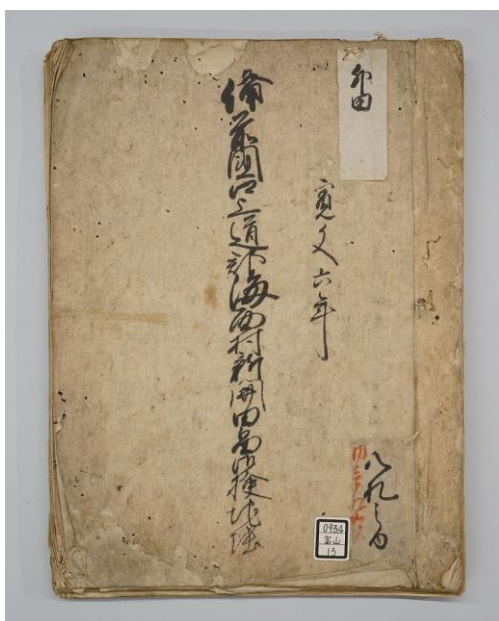 寛文六年
備前國口上道郡海面村新開田畠御検地帳
0934
富山
13